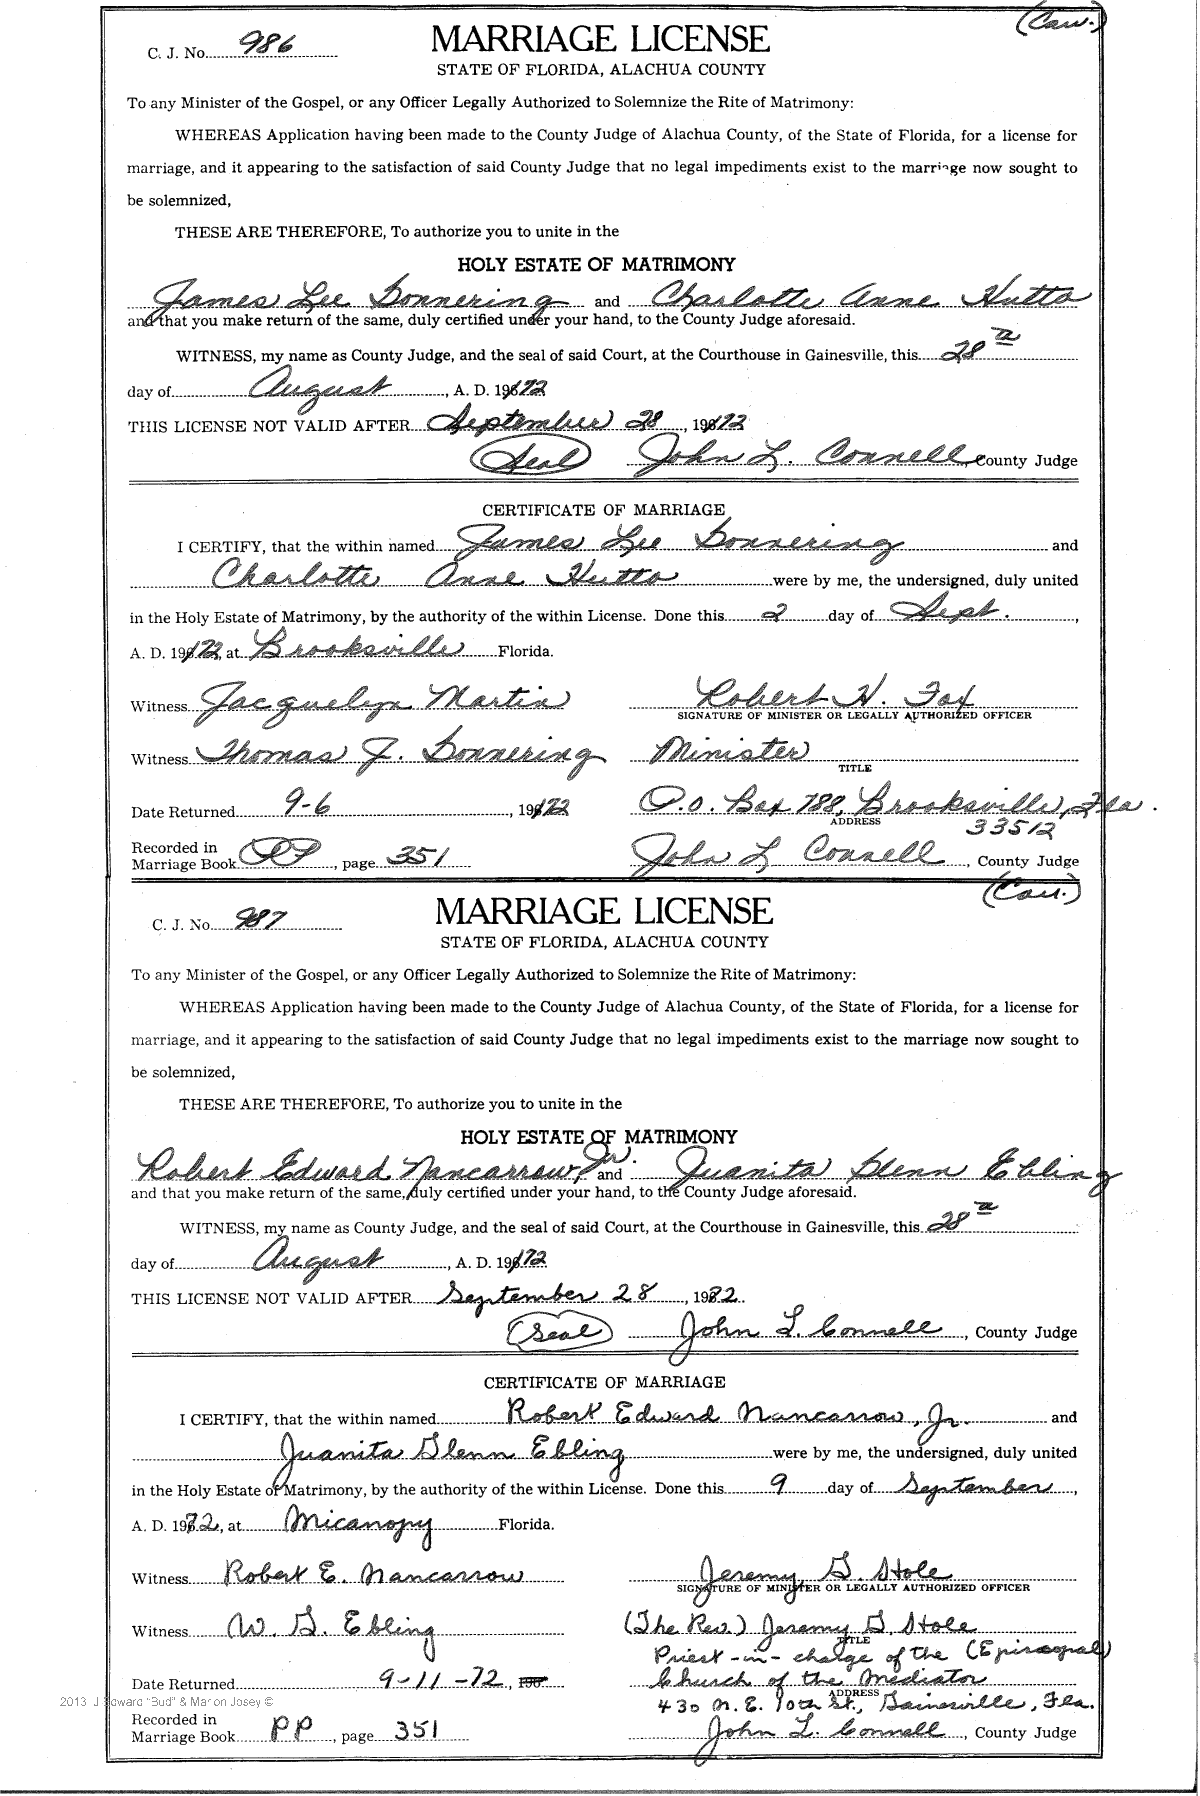 (Cau.)
C. J. No. 986
MARRIAGE LICENSE
STATE OF FLORIDA, ALACHUA COUNTY
To any Minister of the Gospel, or any Officer Legally Authorized to Solemnize the Rite of Matrimony:
WHEREAS Application having been made to the County Judge of Alachua County, of the State of Florida, for a license for
marriage, and it appearing to the satisfaction of said County Judge that no legal impediments exist to the marriage now sought to
be solemnized,
THESE ARE THEREFORE, To authorize you to unite in the
HOLY ESTATE OF MATRIMONY
James Lee Donnering and Charlotte Anne Hutto
and that you make return of the same, duly certified under your hand, to the County Judge aforesaid.
WITNESS, my name as County Judge, and the seal of said Court, at the Courthouse in Gainesville, this 28th
day of August, A. D. 1972
THIS LICENSE NOT VALID AFTER September 28, 1972
(Seal) John L. Connell County Judge
CERTIFICATE OF MARRIAGE
I CERTIFY, that the within named James Lee Donnering and
Charlotte Anne Hutto were by me, the undersigned, duly united
in the Holy Estate of Matrimony, by the authority of the within License. Done this 2 day of Sept.,
A. D. 1972, at Brooksville Florida.
Witness Jacquelyn Martin Robert H. Fox
SIGNATURE OF MINISTER OR LEGALLY AUTHORIZED OFFICER
Witness Thomas J. Donnering Minister
TITLE
Date Returned 9-6, 1972 P.O. Box 788, Brooksville, Fla.
ADDRESS 33512
Recorded in
Marriage Book PP, page 351 John L Connell, County Judge
(Cau.)
C. J. No. 987
MARRIAGE LICENSE
STATE OF FLORIDA, ALACHUA COUNTY
To any Minister of the Gospel, or any Officer Legally Authorized to Solemnize the Rite of Matrimony:
WHEREAS Application having been made to the County Judge of Alachua County, of the State of Florida, for a license for
marriage, and it appearing to the satisfaction of said County Judge that no legal impediments exist to the marriage now sought to
be solemnized,
THESE ARE THEREFORE, To authorize you to unite in the
HOLY ESTATE OF MATRIMONY
Robert Edward Nancarrow, Jr. and Juanita Glenn Ebling
and that you make return of the same, duly certified under your hand, to the County Judge aforesaid.
WITNESS, my name as County Judge, and the seal of said Court, at the Courthouse in Gainesville, this 28th
day of August, A. D. 1972
THIS LICENSE NOT VALID AFTER September 28, 1972
(Seal) John L. Connell, County Judge
CERTIFICATE OF MARRIAGE
I CERTIFY, that the within named Robert Edward Nancarrow, Jr. and
Juanita Glenn Ebling were by me, the undersigned, duly united
in the Holy Estate of Matrimony, by the authority of the within License. Done this 9 day of September,
A. D. 1972, at Micanopy Florida.
Witness Robert E. Nancarrow Jeremy G. Stole
SIGNATURE OF MINISTER OR LEGALLY AUTHORIZED OFFICER
Witness W. G. Ebling (The Rev.) Jeremy G. Stole
TITLE
Priest-in-charge of the (Episcopal)
Date Returned 9-11-72, 196 Church of the Mediator
ADDRESS
2013 J Edward "Bud" & Marion Josey © 430 N.E. 10th St., Gainesville, Fla.
Recorded in
Marriage Book PP, page 351 John L. Connell, County Judge